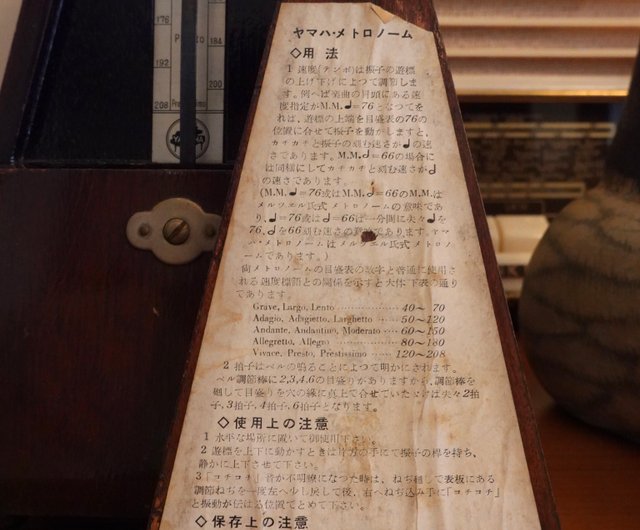 176
184
192
200
208
Presto
ヤマハ・メトロノーム
◇用法
1 速度(テンポ)は振子の遊標
の上げ下げによつて調節しま
す。例へば楽曲の冒頭にある速
度指定がM.M.♩=76となつてを
れば、遊標の上端を目盛表の76の
位置に合せて振子を動かしますと、
カチカチと振子の刻む速さが♩の速
さであります。M.M.𝅗𝅥=66の場合に
は同様にしてカチカチと刻む速さが𝅗𝅥
の速さであります。
(M.M.♩=76或はM.M.𝅗𝅥=66のM.M.は
メルツエル氏式メトロノームの意味であ
り、♩=76或は𝅗𝅥=66は一分間に夫々♩を
76、𝅗𝅥を66刻む速さの意味であります。ヤマ
ハ・メトロノームはメルツエル氏式メトロノ
ームであります。)
尚メトロノームの目盛表の数字と普通に使用さ
れる速度標語との関係を示すと大体下表の通り
であります。
Grave, Largo, Lento ............... 40〜 70
Adagio, Adagietto, Larghetto ...... 50〜120
Andante, Andantino, Moderato ... 60〜150
Allegretto, Allegro ............... 80〜180
Vivace, Presto, Prestissimo ...... 120〜208
2 拍子はベルの鳴ることによつて明かにされます。
ベル調節棒に2,3,4,6の目盛りがありますから、調節棒を
廻して目盛りを穴の縁に真上で合せていたゞけば夫々2拍
子、3拍子、4拍子、6拍子となります。
◇使用上の注意
1 水平な場所に置いて御使用下さい。
2 遊標を上下に動かすときは片方の手にて振子の桿を持ち、
静かに上下させて下さい。
3「コチコチ」音が不明瞭になつた時は、ねぢ廻しで表板にある
調節ねぢを一度左へ少し戻して後、右へねぢ込み手に「コチコチ」
と振動が伝はる位置でとめて下さい。
◇保存上の注意